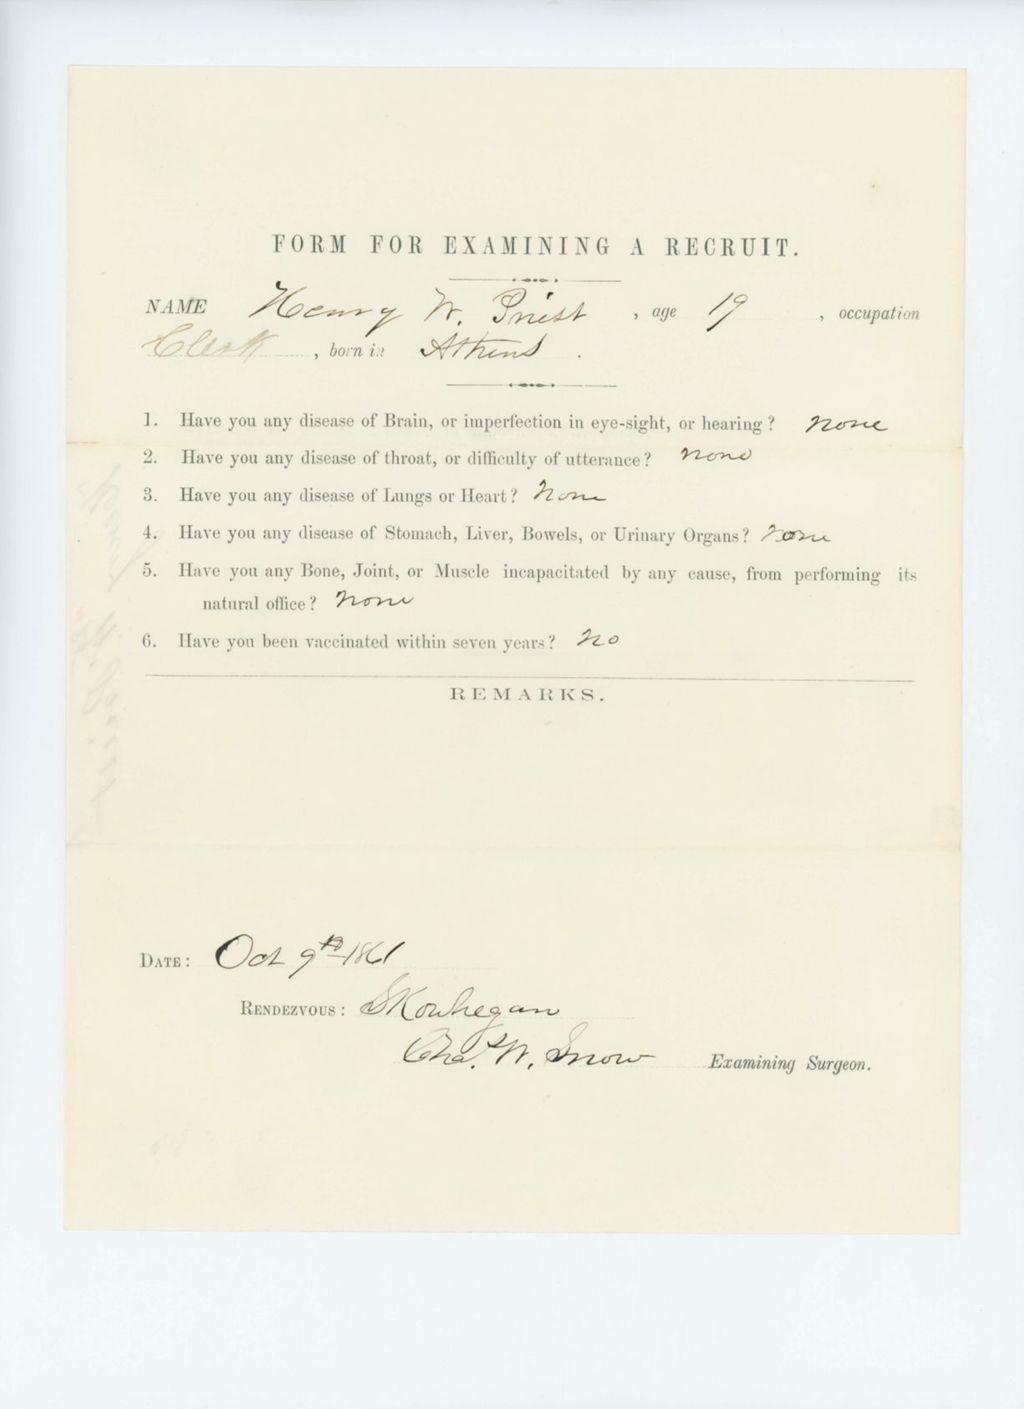 FORM FOR EXAMINING A RECRUIT.
NAME Henry W. Priest , age 19 , occupation
Clerk , born in Athens .
1. Have you any disease of Brain, or imperfection in eye-sight, or hearing? None
2. Have you any disease of throat, or difficulty of utterance? None
3. Have you any disease of Lungs or Heart? None
4. Have you any disease of Stomach, Liver, Bowels, or Urinary Organs? None
5. Have you any Bone, Joint, or Muscle incapacitated by any cause, from performing its
natural office? None
6. Have you been vaccinated within seven years? No
REMARKS.
DATE: Oct 9th 1861
RENDEZVOUS: SKowhegan
Chas. W. Snow Examining Surgeon.